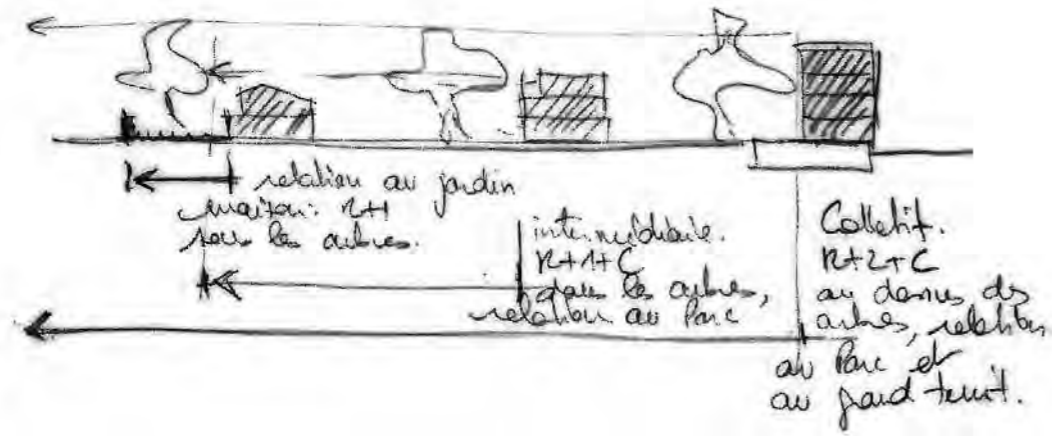 relation au jardin
maison: R+1
sous les arbres.
intermédiaire.
R+1+C
dans les arbres,
relation au Parc
Collectif.
R+2+C
au dessus des
arbres, relation
au Parc et
au grand territ.